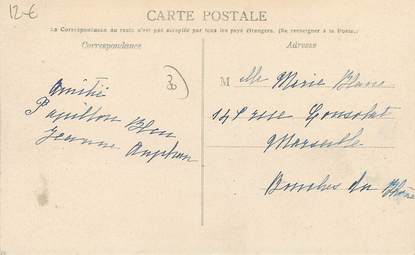 12€
CARTE POSTALE
La Correspondance au recto n'est pas acceptée par tous les pays étrangers. (Se renseigner à la Poste.)
Correspondance
Adresse
Amitié
Papillon Bleu
Jeanne
Melle Marie Blanc
148 rue Consolat
Marseille
Bouches du Rhône